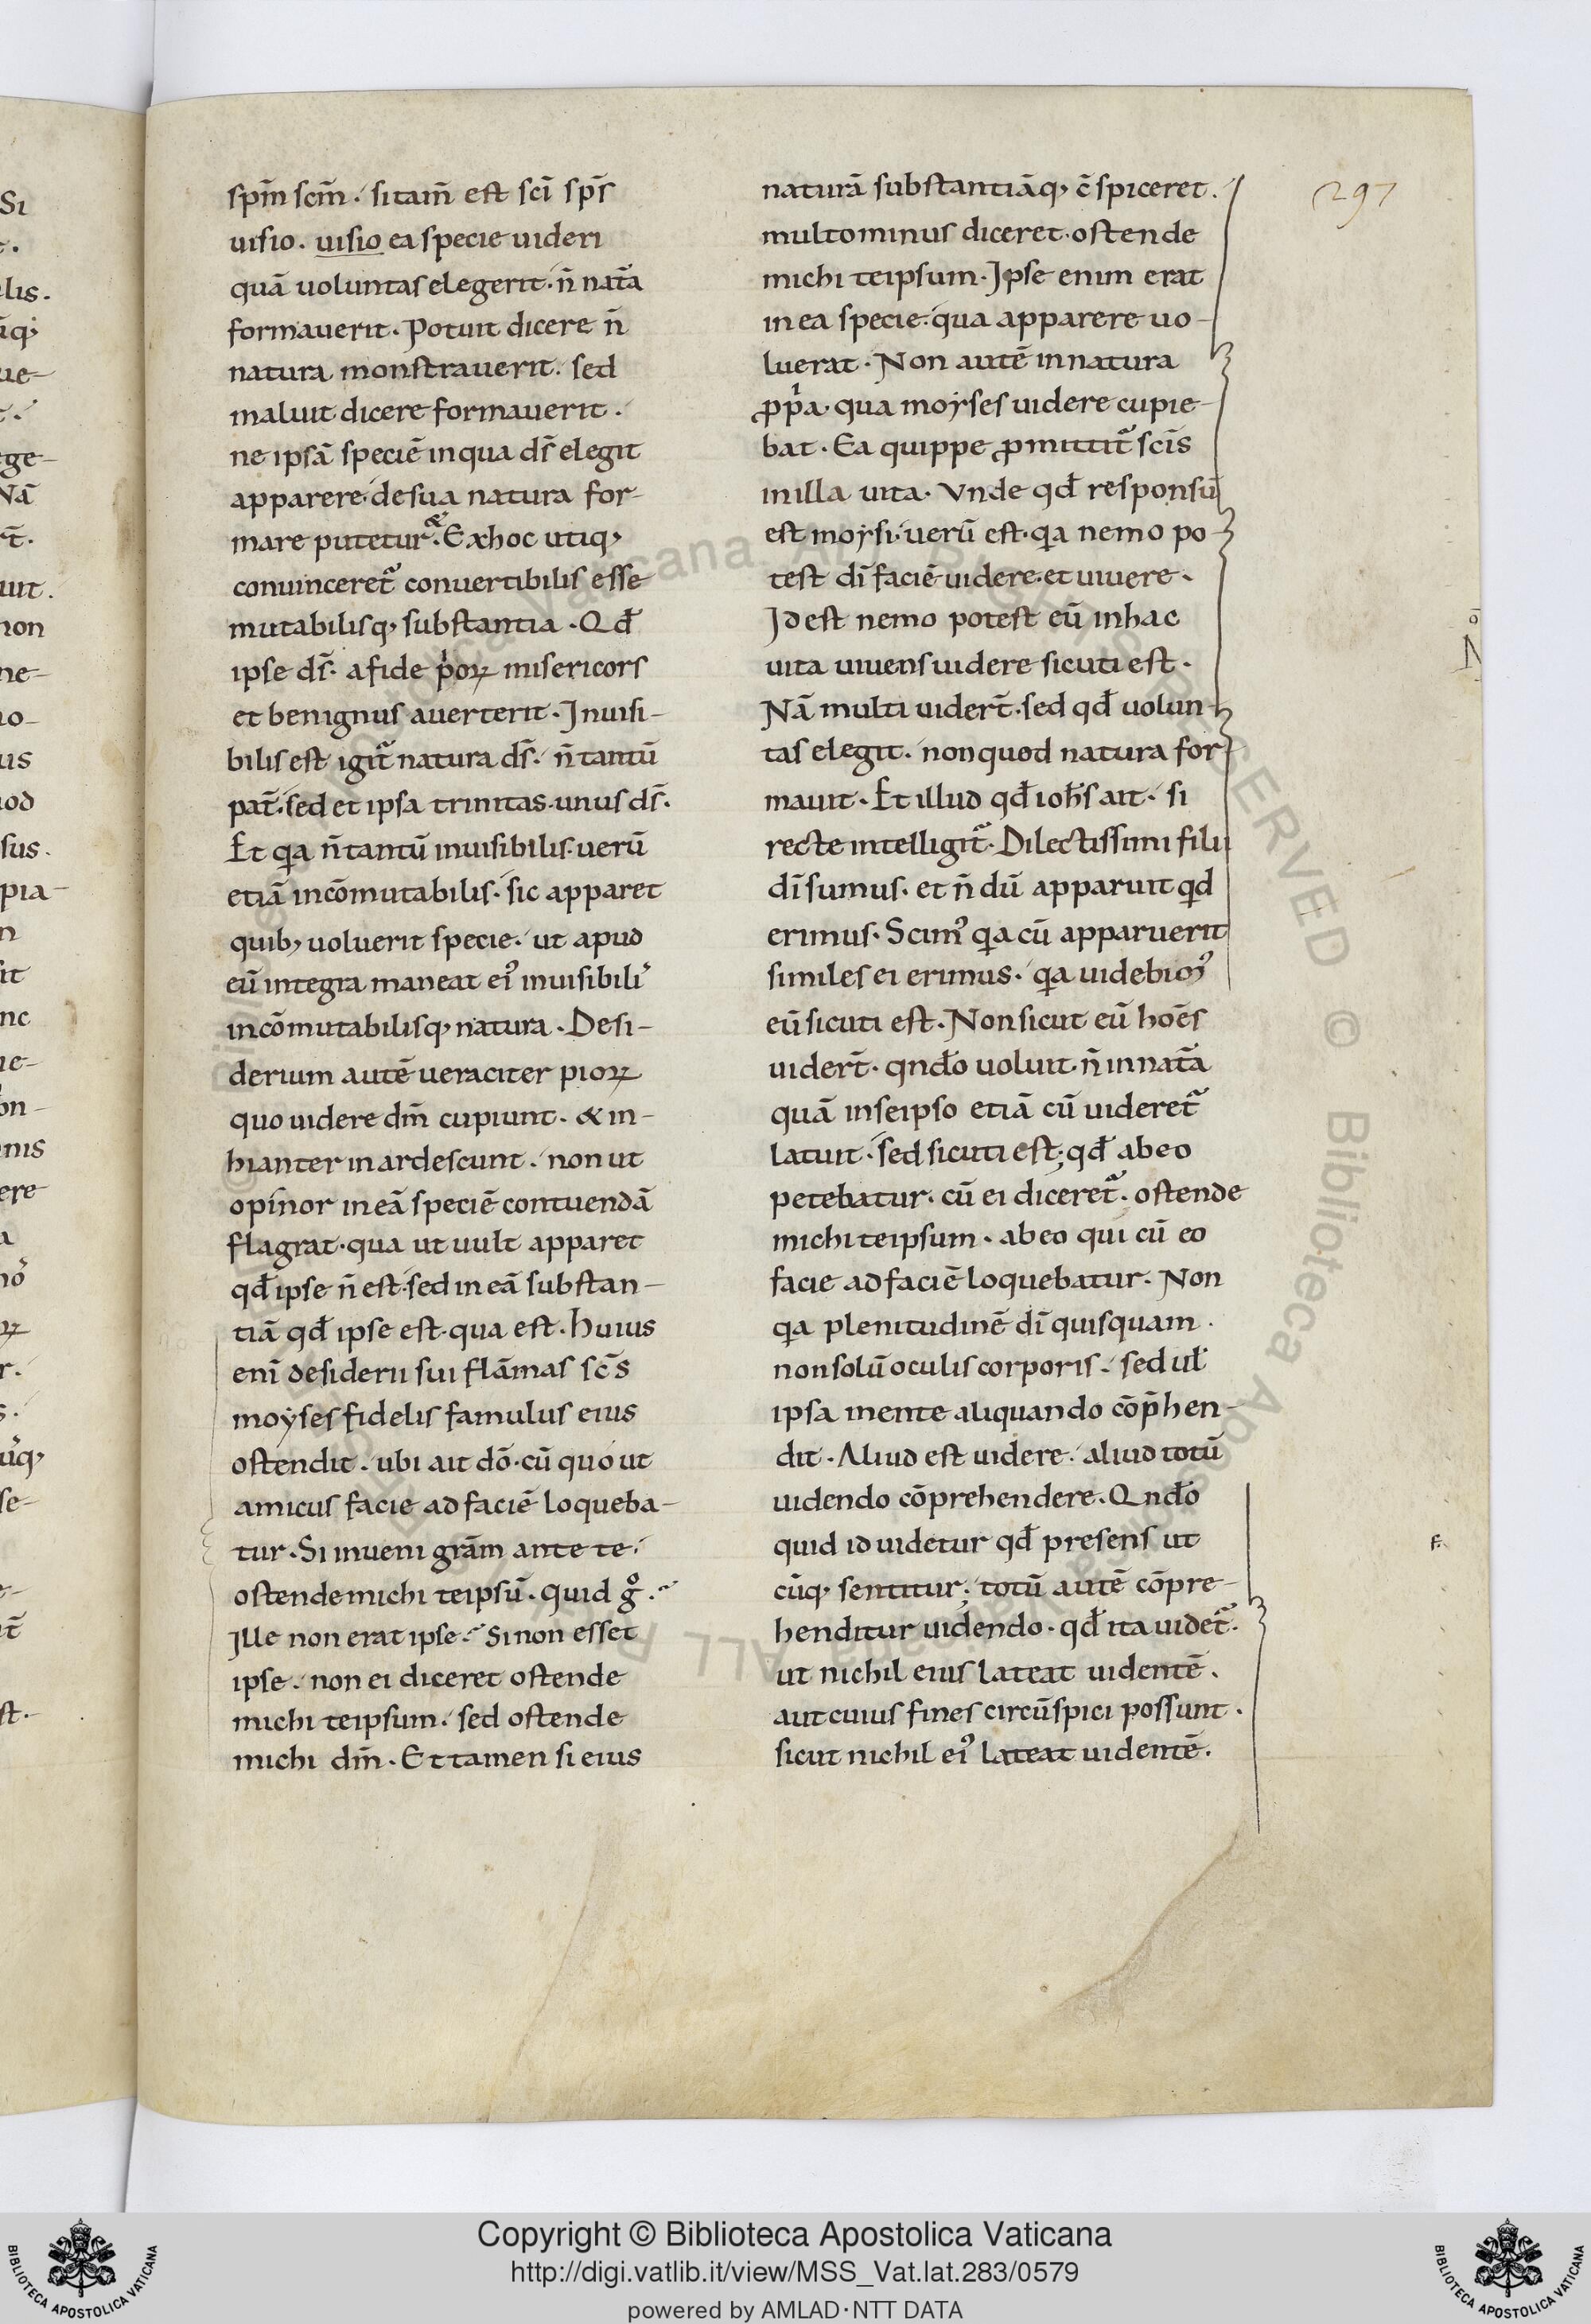 297
spm̄ scm̄. sitam̄ est scī sps̄
uisio. uisio ea specie uideri
quā uoluntas elegerit. n̄ natȃ
formauerit. Potuit dicere n̄
natura monstrauerit. sed
maluit dicere formauerit.
ne ipsā speciē in qua ds̄ elegit
apparere. de sua natura for-
mare putetur. & Ex hoc utiq,
conuinceret᷑ conuertibilis esse
mutabilisq, substantia. Qđ
ipse ds̄. a fide pͥoꝝ misericors
et benignus auerterit. Inuisi-
bilis est igit᷑ natura ds̄. n̄ tantū
pat̄. sed et ipsa trinitas. unus ds̄.
Et qa n̄ tantū inuisibilis. uerū
etiā incōmutabilis. sic apparet
quib, uoluerit specie. ut apud
eū integra maneat ei᾽ inuisibili᾽
incōmutabilisq, natura. Desi-
derium autē ueraciter pioꝝ
quo uidere dm̄ cupiunt. & in-
hianter inardescunt. non ut
opinor in eā speciē contuendā
flagrat. qua ut uult apparet
qđ ipse n̄ est. sed in eā substan-
tiā qđ ipse est. qua est. Huius
enī desiderii sui flāmas sc̄s
moyses fidelis famulus eius
ostendit. ubi ait dō. cū quo ut
amicus facie ad faciē loqueba-
tur. Si inueni grām ante te.
ostende michi teipsū. Quid gͦ.
Ille non erat ipse. Si non esset
ipse. non ei diceret ostende
michi teipsum. sed ostende
michi dm̄. Et tamen si eius
naturā substantiāq, c̄spiceret.
multominus diceret. ostende
michi teipsum. Ipse enim erat
in ea specie. qua apparere uo-
luerat. Non autē in natura
ꝓpͥa. qua moyses uidere cupie-
bat. Ea quippe ꝓmittit᷑ scīs
in illa uita. Vnde qđ responsū
est moysi. uerū est. qa nemo po-
test dī faciē uidere. et uiuere.
Id est nemo potest eū in hac
uita uiuens uidere sicuti est.
Nā multi uiderт̄. sed qđ uolun-
tas elegit. non quod natura for
mauit. Et illud qđ iohs̄ ait. si
recte intelligit᷑. Dilectissimi filii
dī sumus. et n̄ dū apparuit qd
erimus. Scim᾽ qa cū apparuerit
similes ei erimus. qa uidebim᾽
eū sicuti est. Non sicut eū hoēs
uidert̄. qndo uoluit. n̄ in natȃ
quā in seipso etiā cū uideret᷑
latuit. sed sicuti est; qđ ab eo
petebatur. cū ei diceret᷑. ostende
michi teipsum. ab eo qui cū eo
facie ad faciē loquebatur. Non
qa plenitudinē dī quisquam.
non solū oculis corporis. sed ul̄
ipsa mente aliquando cōp̄hen-
dit. Aliud est uidere. aliud totū
uidendo cōprehendere. Qndo
quid id uidetur qđ presens ut
cūq, sentitur; totū autē cōpre-
henditur uidendo. qđ ita uidet᷑.
ut nichil eius lateat uidentē.
aut cuius fines circūspici possunt.
sicut nichil ei᾽ lateat uidentē.
Copyright © Biblioteca Apostolica Vaticana
http://digi.vatlib.it/view/MSS_Vat.lat.283/0579
powered by AMLAD·NTT DATA